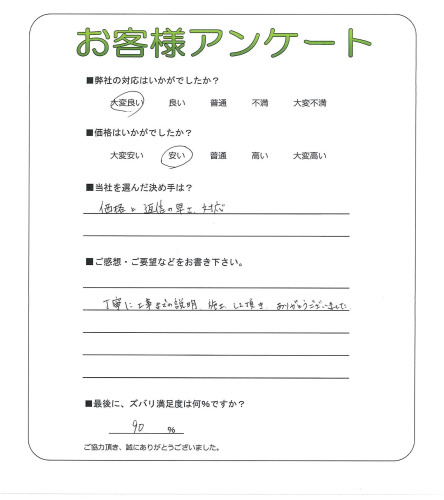 お客様アンケート
■弊社の対応はいかがでしたか?
大変良い 良い 普通 不満 大変不満
■価格はいかがでしたか?
大変安い 安い 普通 高い 大変高い
■当社を選んだ決め手は?
価格と返信の早さ、対応
■ご感想・ご要望などをお書き下さい。
丁寧に工事までの説明、施工して頂き、ありがとうございました
■最後に、ズバリ満足度は何%ですか?
90 %
ご協力頂き、誠にありがとうございました。